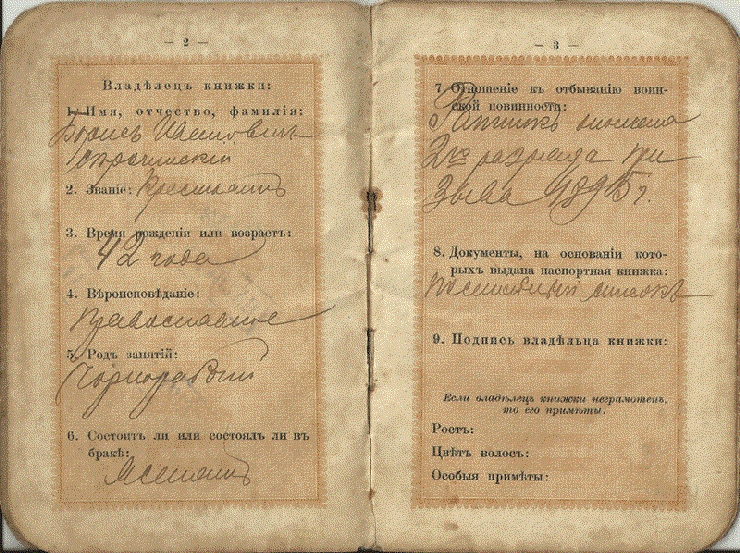 — 2 —
Владѣлецъ книжки:
1. Имя, отчество, фамилія:
Борисъ
2. Званіе: Крестьянинъ
3. Время рожденія или возрастъ:
42 года
4. Вѣроисповѣданіе:
Православное
5. Родъ занятій:
Чернорабочій
6. Состоитъ ли или состоялъ ли въ
бракѣ:
Женатъ
— 3 —
7. Отношеніе къ отбыванію воин-
ской повинности:
Ратникъ ополченія
2го разряда при
зыва 1895 г.
8. Документы, на основаніи кото-
рыхъ выдана паспортная книжка:
списокъ
9. Подпись владѣльца книжки:
Если владѣлецъ книжки неграмотенъ,
то его примѣты.
Ростъ:
Цвѣтъ волосъ:
Особыя примѣты: